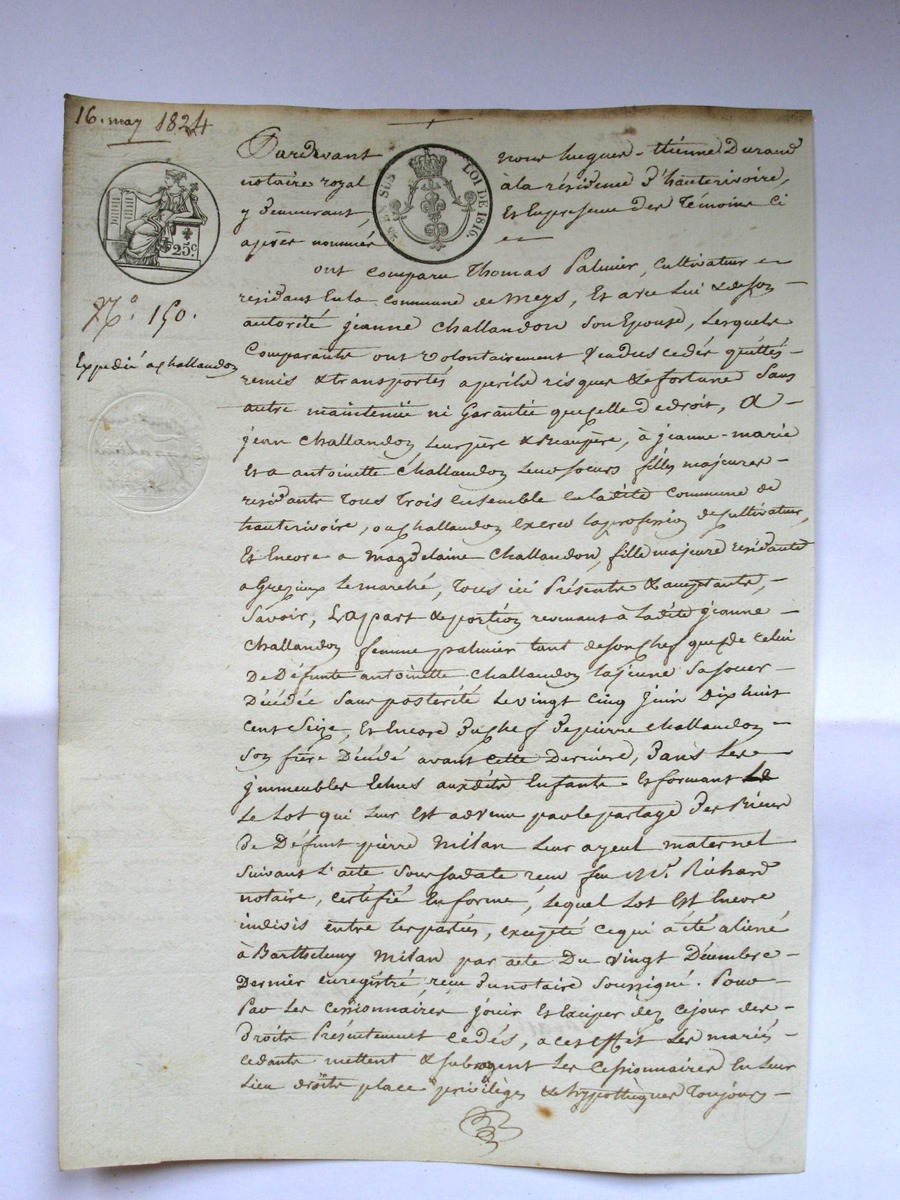 16. may 1824
Pardevant nous hugues-étienne Durand
notaire royal à la résidence d'hauterivoire,
y demeurant, Et en presence des Témoins ci
après nommés
25c.
EN SUS LOI DE 1816.
ont comparu Thomas Palmier, cultivateur
residant En la commune de meys, Et avec Lui & de son
autorité jeanne Challandon son Epouse, Lesquels
N.° 150.
Comparants ont volontairement Vendus cedés quittés
Expedié a challandon
remis & transportés a perils risques & fortune Sans
autre maintenüe ni Garantie que celle de droit, A
jean Challandon Leur père & Beaupère, à jeanne-marie
Et a antoinette Challandon Leurs soeurs filles majeures
residants Tous Trois Ensemble En ladite commune de
hauterivoire, ou challandon Exerce la profession de cultivateur,
Et Encore a magdelaine Challandon, fille majeure residante
a Grezieux Le marché, Tous ici Présents & acceptants,
Savoir, La part & portion revenant à Ladite jeanne
Challandon femme palmier tant de son chef que de celui
De Défunte antoinette challandon la jeune sa soeur
Décédée Sans posterité Le vingt cinq juin Dix huit
cent Seize, Et Encore du chef de pierre challandon
Son frère Décédé avant cette Derniere, Dans Les
jmmeubles Echus auxdits Enfants Et formant
Le Lot qui Leur Est advenu par le partage des Biens
De Défunt pierre Milan Leur ayeul maternel
Suivant L'acte sous sa date recu feu M.e Richard
notaire, certifié En forme, Lequel Lot Est Encore
indivis entre les parties, excepté ce qui a été aliené
à Barthelemy Milan par acte Du vingt Décembre
Dernier enregistré, recu du notaire soussigné. Pour
Par Les cessionnaires jouir Et Exciper dez ce jour des
Droits Présentement cedés, a cet effet Les mariés
cedants mettent & subrogent Les cessionnaires En Leur
Lieu droits place privilèges & hypothèques Toujours